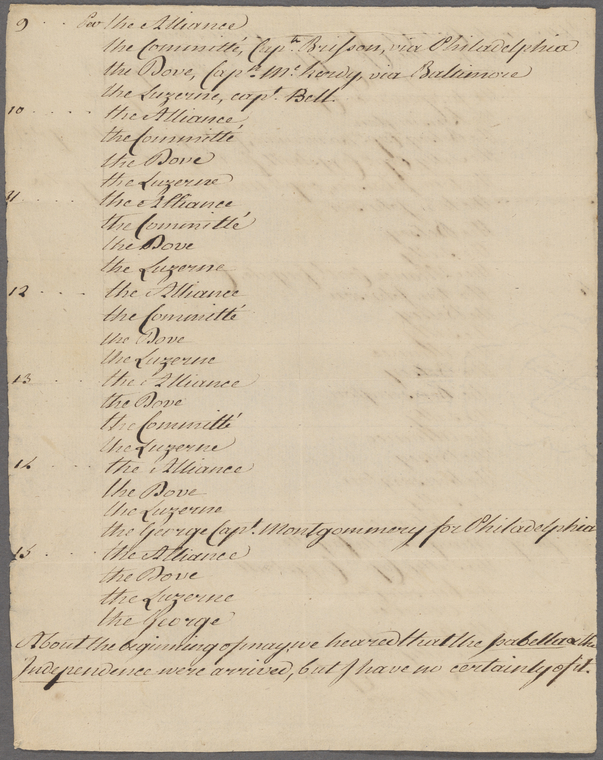 9 . . . Per the Alliance
the Committé, Capt. Brisson, via Philadelphia
the Dove, Capt. Mc. herdy, via Baltimore
the Luzerne, capt. Bell.
10 . . . . the Alliance
the Committé
the Dove
the Luzerne
11 . . . . the Alliance
the Committé
the Dove
the Luzerne
12 . . . . the Alliance
the Committé
the Dove
the Luzerne
13 . . . . the Alliance
the Dove
the Committé
the Luzerne
14 . . . . the Alliance
the Dove
the Luzerne
the George Capt. Montgommery for Philadelphia
15 . . . . the Alliance
the Dove
the Luzerne
the George
About the beginning of may, we heared that the Isabella & the
Independence were arrived, but J have no certainty of it.